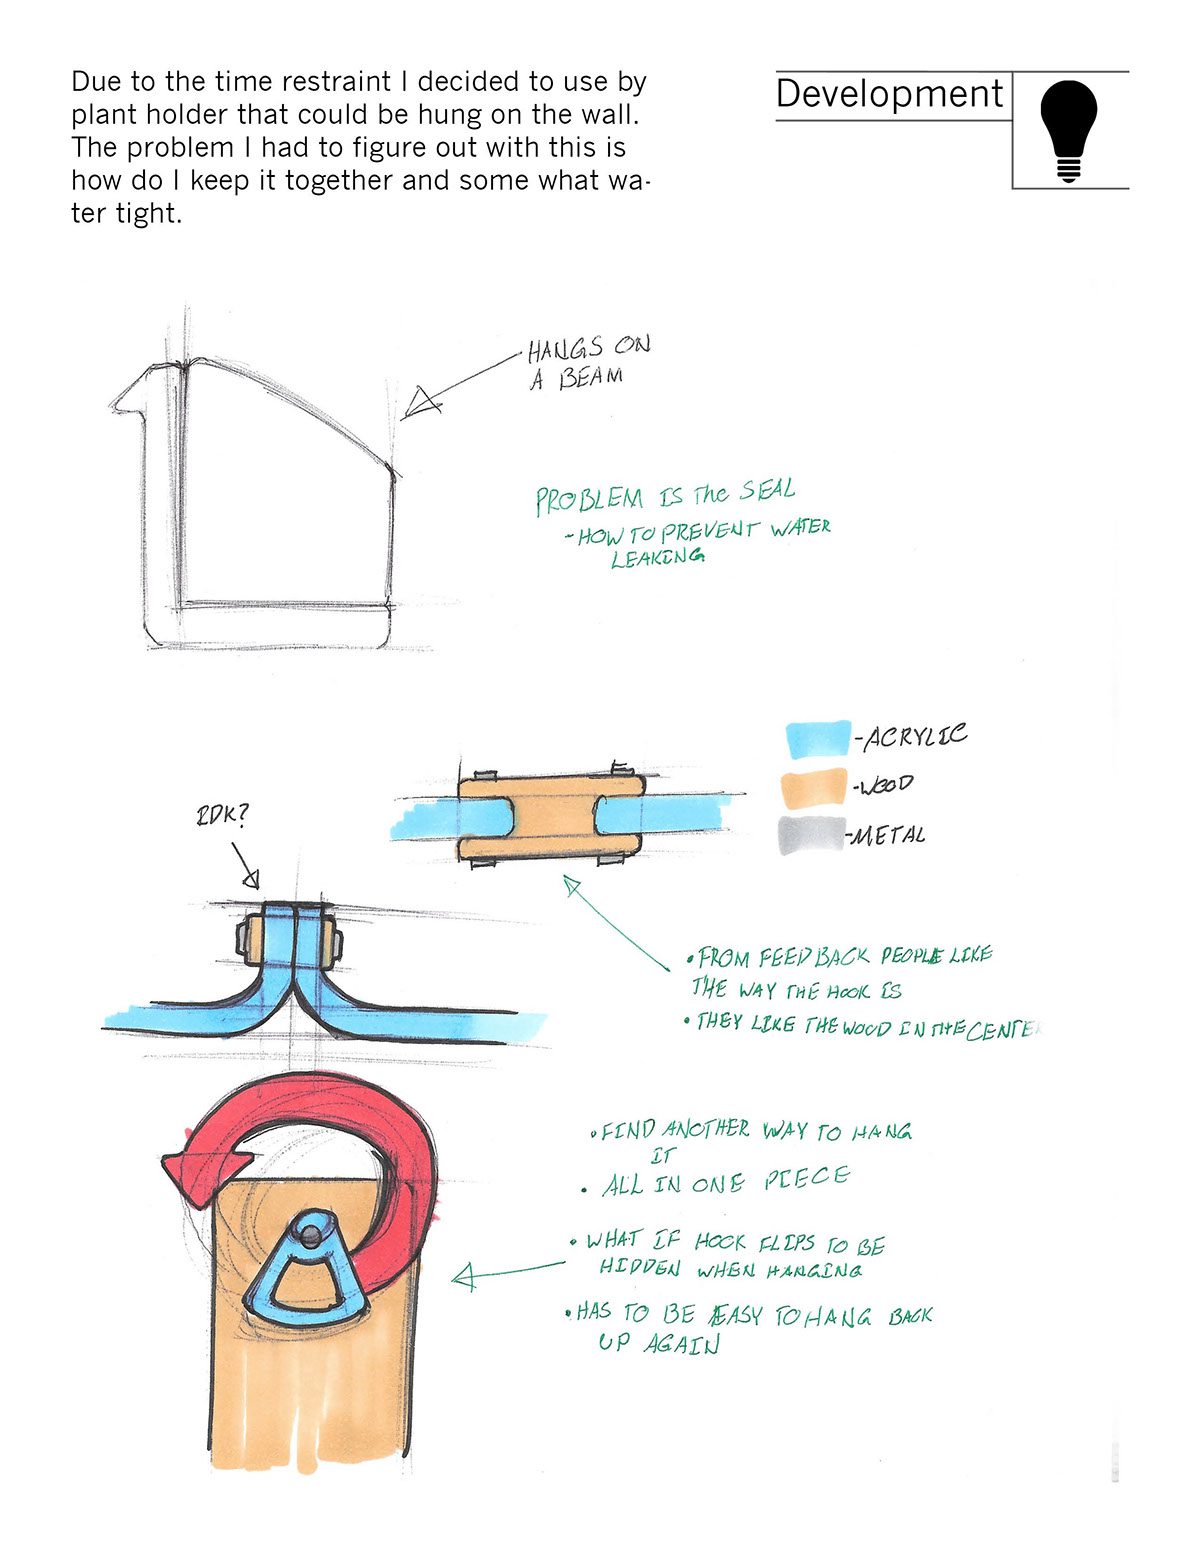 Due to the time restraint I decided to use by
plant holder that could be hung on the wall.
The problem I had to figure out with this is
how do I keep it together and some what wa-
ter tight.
Development
HANGS ON
A BEAM
PROBLEM IS The SEAL
- HOW TO PREVENT WATER
LEAKING
-ACRYLIC
-WOOD
-METAL
IDK?
• FROM FEEDBACK PEOPLE LIKE
THE WAY THE HOOK IS
• THEY LIKE THE WOOD IN THE CENTER
• FIND ANOTHER WAY TO HANG
IT
• ALL IN ONE PIECE
• WHAT IF HOOK FLIPS TO BE
HIDDEN WHEN HANGING
• HAS TO BE EASY TO HANG BACK
UP AGAIN